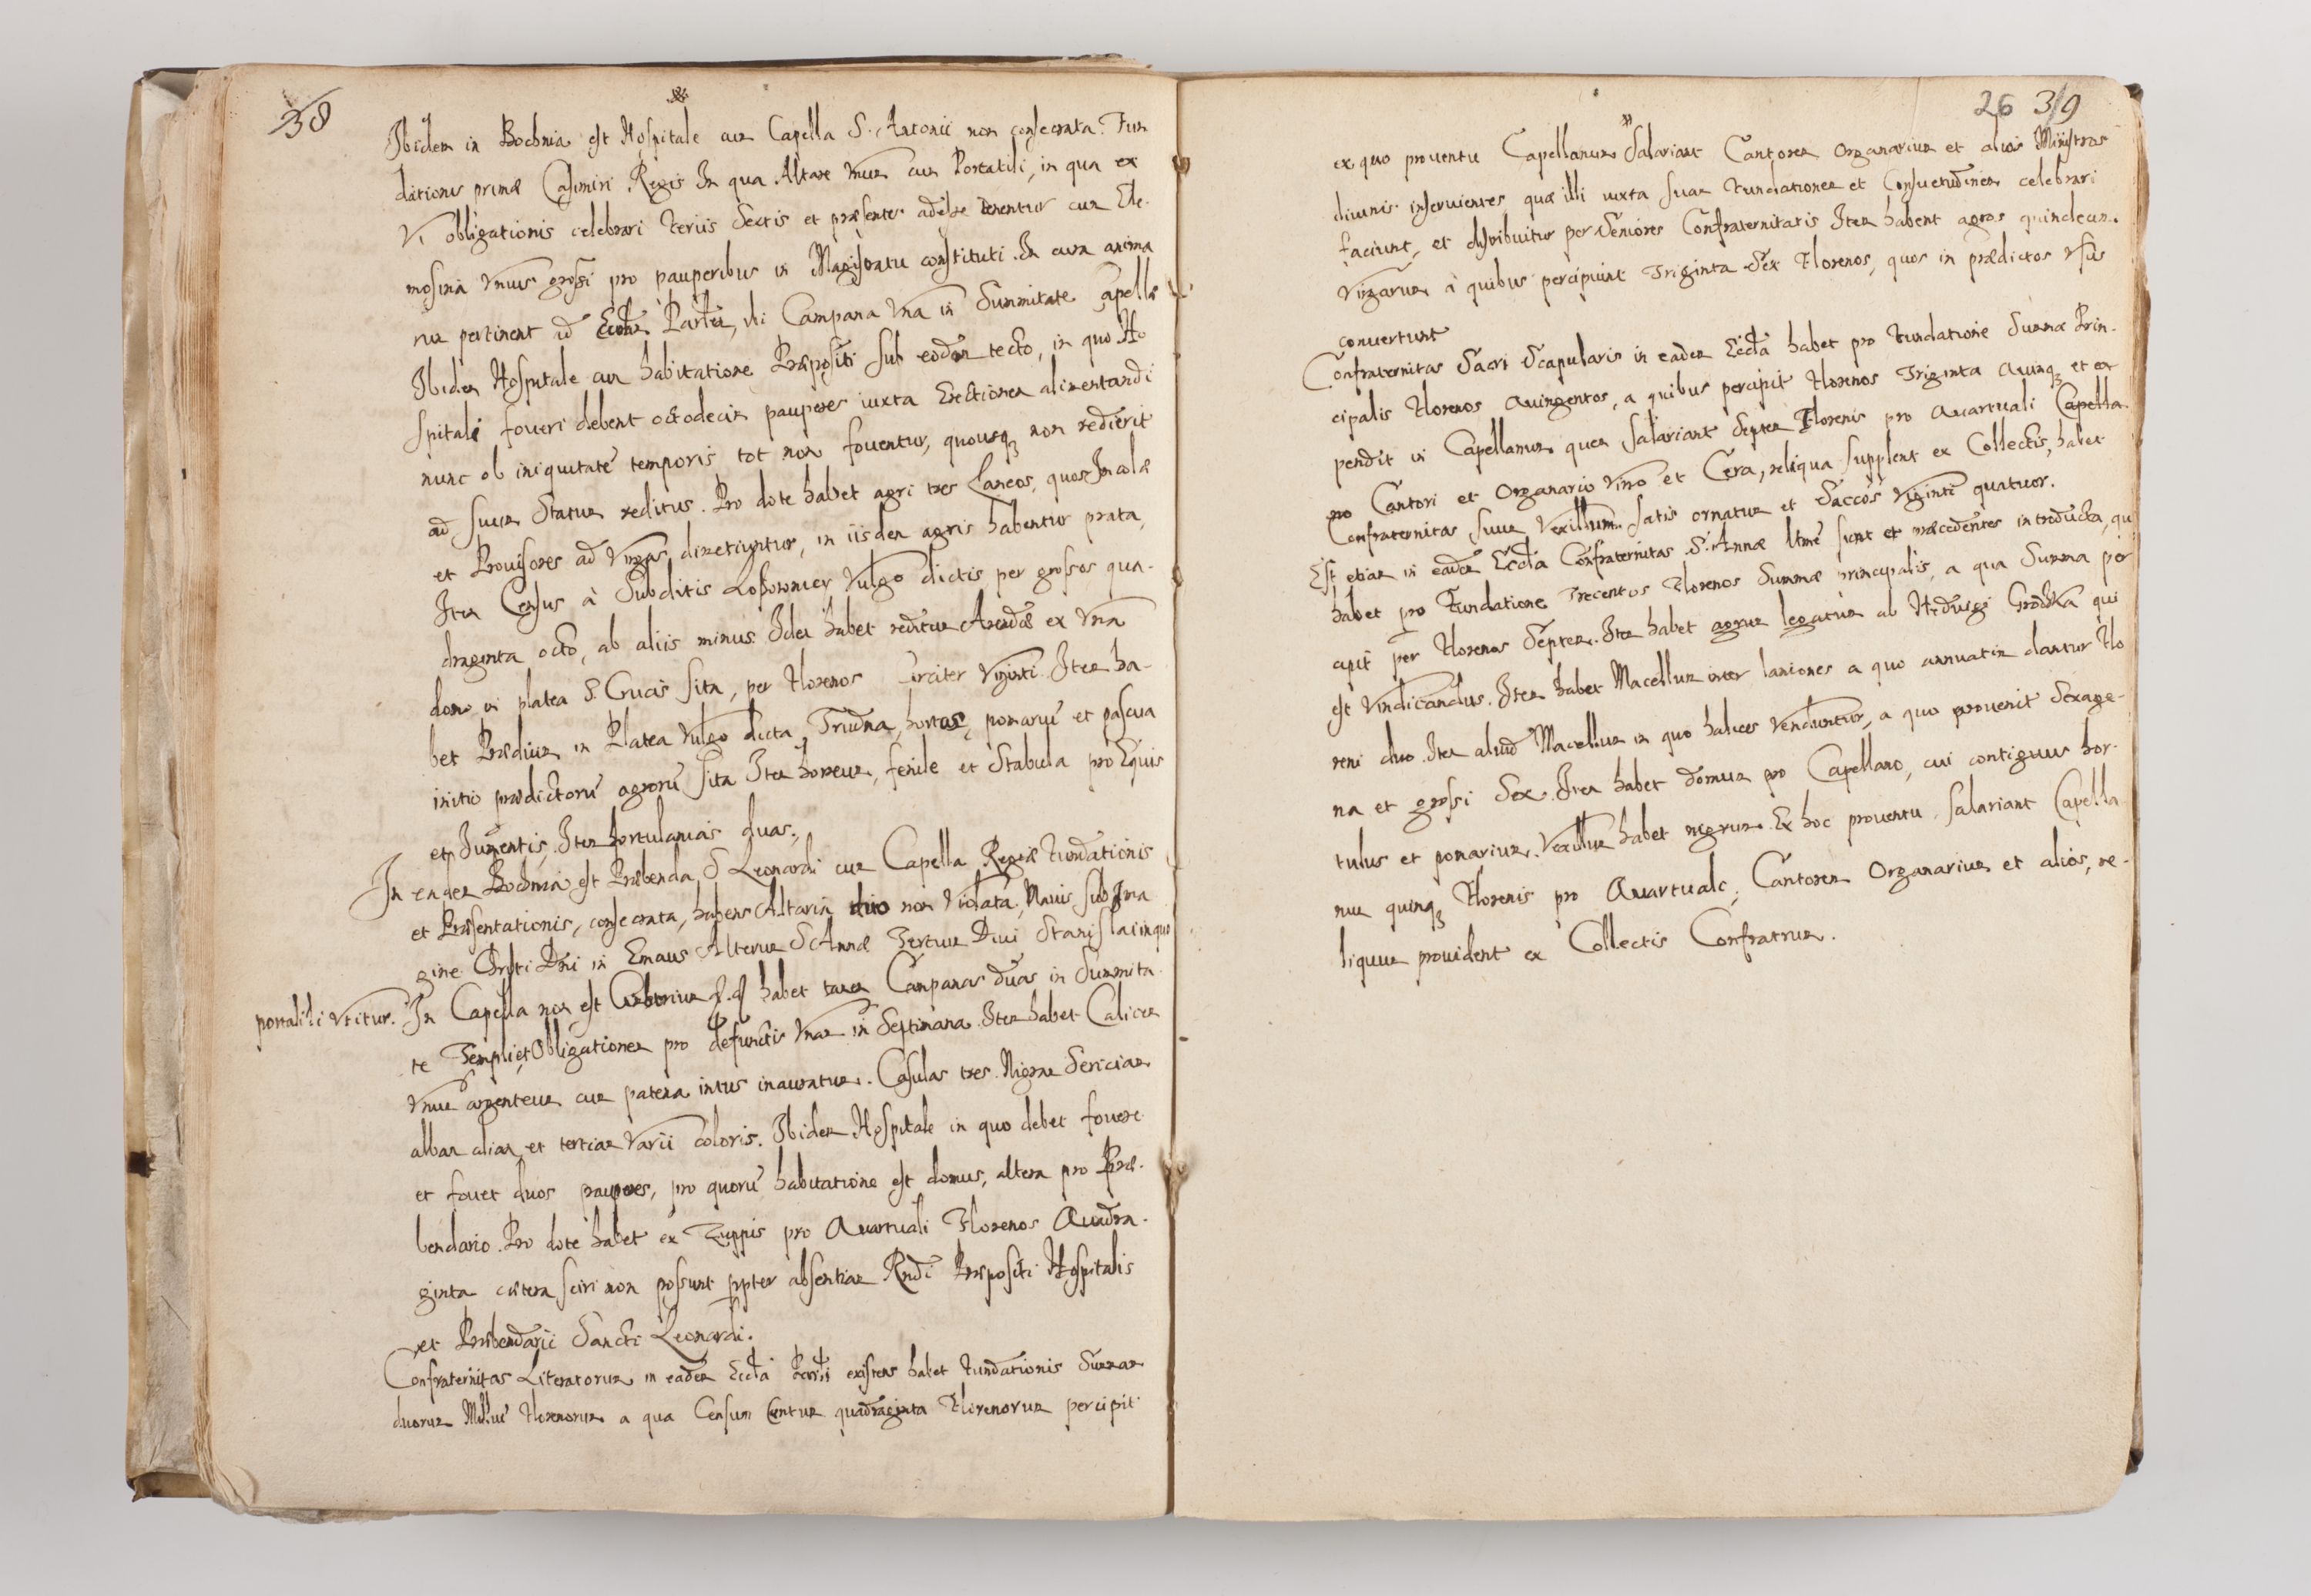 38
Ibidem in Bochnia est Hospitale cum Capella S. Antonii non consecrata. Fun
dationis primæ Casimiri Regis In qua Altare vnum cum Portatili, in qua ex
Vi obligationis celebrari feriis Sextis et præsentes adesse tenentur cum Ele-
mosina vnius grossi pro pauperibus in Magistratu constituti. In cura anima
rum pertinent ad Ecclam Parlem, ibi Campana Vna in Summitate Capellæ
Ibidem Hospitale cum habitatione Præpositi sub eodem tecto, in quo Ho
spitali foueri debent octodecim pauperes iuxta Erectionem alimentandi
nunc ob iniquitatē temporis tot non fouentur, quousq; non redierit
ad suum Statum reditus. Pro dote habet agri tres Laneos, quos Incolæ
et Prouisores ad Virgas dimetiuntur, in iisdem agris habentur prata,
Item Census à Subditis Losownicy Vulgo dictis per grossos qua-
draginta octo, ab aliis minus. Idem habet reditum Arendæ ex Vna
domo in platea S. Crucis sita, per Florenos circiter Viginti. Item ha-
bet Prædium in Platea Vulgo dicta Trudna, hortos, pomariū et pascua
initio prædictorū agrorū sita Item horreum, fenile et Stabula pro Equis
et Jumentis, Item hortulanias duas.
In eadem Bochnia est Præbenda S Leonardi cum Capella Regiæ Fundationis
et Præsentationis, consecrata, habens Altaria duo non Violata, Vnius sub Ima
gine Christi Dni in Emaus Alterum S Annæ Tertium Diui Stanislai in quo
portatili vtitur. In Capella non est Ciborium habet tamen Campanas duas in Summita-
te Templi, et Obligationem pro defunctis Vnam in Septimana. Item habet Calicem
Vnum argenteum cum patena intus inauratum. Casulas tres. Nigram Sericiam
albam aliam et tertiam Varii coloris. Ibidem Hospitale in quo debet fouere
et fouet duos pauperes, pro quorū habitatione est domus, altera pro Præ-
bendario. Pro dote habet ex Zuppis pro Quartuali Florenos Quadra-
ginta cætera sciri non possunt ppter absentiam Rndi Præpositi Hospitalis
et Præbendarii Sancti Leonardi.
Confraternitas Literatorum in eadem Eccla Parlii existens habet Fundationis Summam
duorum Milliū Florenorum a qua Censum Centum quadraginta Florenorum percipit
26 39
ex quo prouentu Capellanum Salariant Cantorem Organarium et alios Ministros
diuinis inseruientes quæ illi iuxta suam Fundationem et Consuetudinem celebrari
faciunt, et distribuitur per Seniores Confraternitatis Item habent agros quindecim.
Virgarum à quibus percipiunt Triginta Sex Florenos, quos in prædictos Vsus
conuertunt
Confraternitas Sacri Scapularis in eadem Eccla habet pro Fundatione Summæ Prin-
cipalis Florenos Quingentos, a quibus percipit Florenos Triginta Quinq; et ex
pendit in Capellanum quem Salariant Septem Florenis pro Quartuali Capella
no Cantori et Organario Vino et Cera, reliqua supplent ex Collectis, habet
Confraternitas suum Vexillum satis ornatum et Saccos Viginti quatuor.
Est etiam in eadem Eccla Confraternitas S. Annæ sicut et præcedentes introducta, quæ
habet pro Fundatione Trecentos Florenos Summæ principalis, a qua Summa per
cipit per Florenos Septem. Item habet agrum legatum ab Heduigi Grodzka qui
est Vindicandus. Item habet Macellum inter laniones a quo annuatim dantur Flo
reni duo. Item aliud Macellum in quo haleces Venduntur, a quo prouenit Sexage-
na et grossi Sex. Item habet domum pro Capellano, cui contiguus hor-
tulus et pomarium. Vexillum habet nigrum. Ex hoc prouentu Salariant Capella
num quinq; Florenis pro Quartuale, Cantorem Organarium et alios, re-
liquum prouident ex Collectis Confratrum.